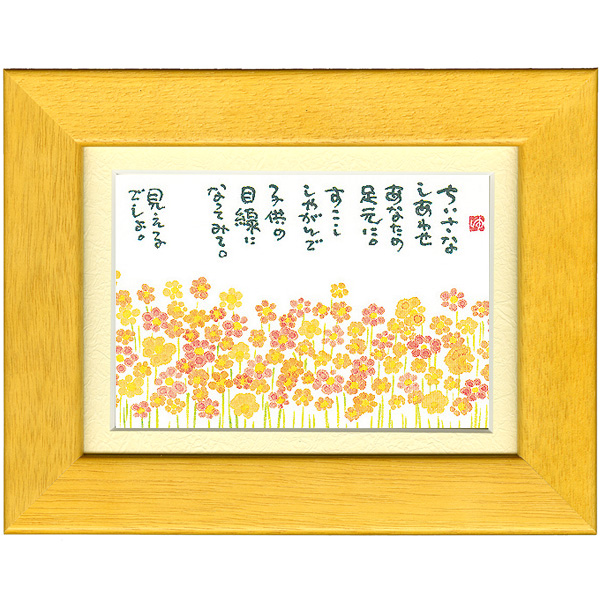 ちいさな
しあわせ
あなたの
足元に。
すこし
しゃがんで
子供の
目線に
なってみて。
見える
でしょ。